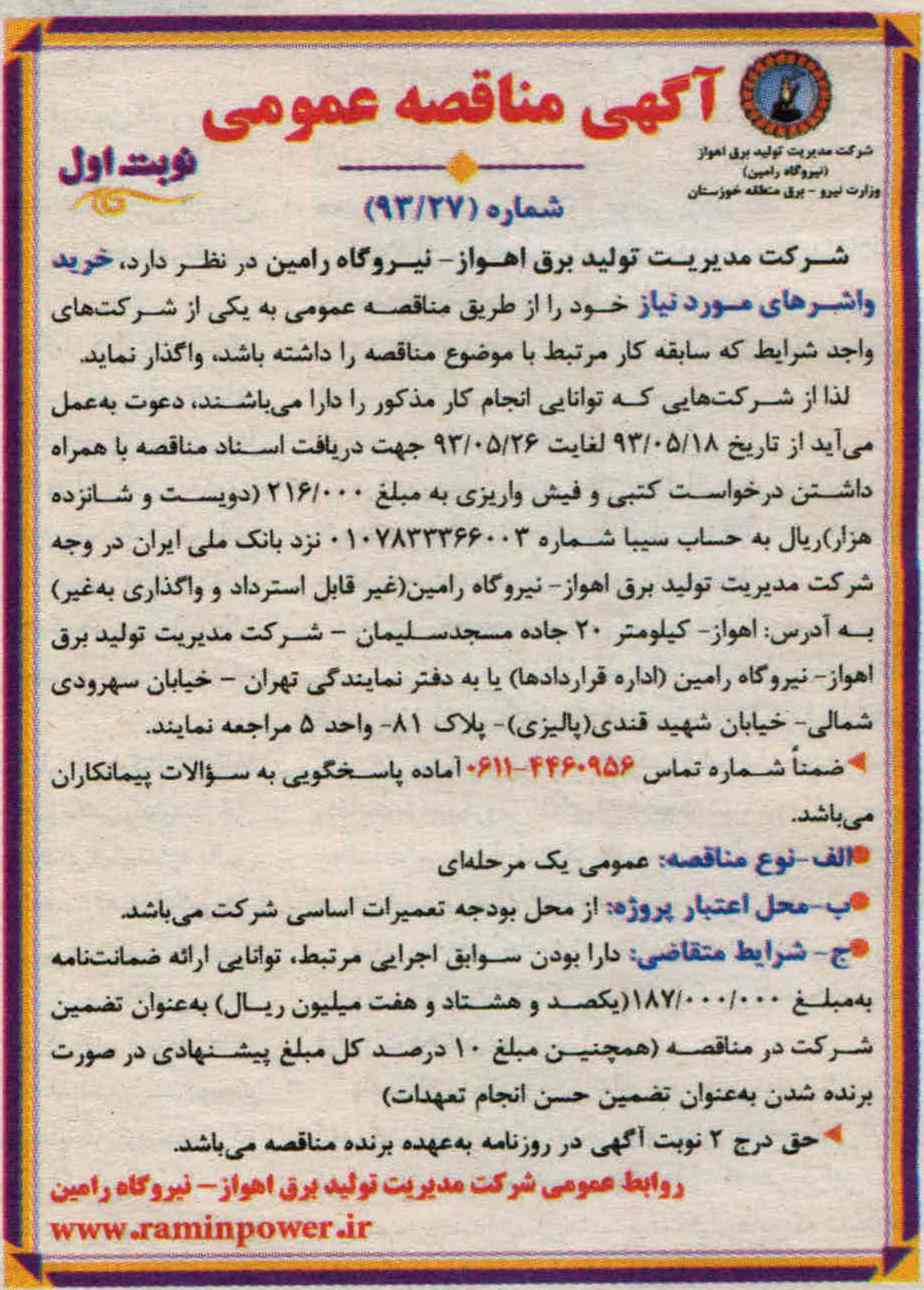 آگهی مناقصه عمومی
شرکت مدیریت تولید برق اهواز
(نیروگاه رامین)
وزارت نیرو - برق منطقه خوزستان
نوبت اول
شماره (۹۳/۲۷)
شرکت مدیریت تولید برق اهواز- نیروگاه رامین در نظر دارد، خرید
واشرهای مورد نیاز خود را از طریق مناقصه عمومی به یکی از شرکت‌های
واجد شرایط که سابقه کار مرتبط با موضوع مناقصه را داشته باشد، واگذار نماید.
لذا از شرکت‌هایی که توانایی انجام کار مذکور را دارا می‌باشند، دعوت به‌عمل
می‌آید از تاریخ ۹۳/۰۵/۱۸ لغایت ۹۳/۰۵/۲۶ جهت دریافت اسناد مناقصه با همراه
داشتن درخواست کتبی و فیش واریزی به مبلغ ۲۱۶/۰۰۰ (دویست و شانزده
هزار)ریال به حساب سیبا شماره ۰۱۰۷۸۳۳۳۶۶۰۰۳ نزد بانک ملی ایران در وجه
شرکت مدیریت تولید برق اهواز- نیروگاه رامین(غیر قابل استرداد و واگذاری به‌غیر)
به آدرس: اهواز- کیلومتر ۲۰ جاده مسجدسلیمان - شرکت مدیریت تولید برق
اهواز- نیروگاه رامین (اداره قراردادها) یا به دفتر نمایندگی تهران - خیابان سهرودی
شمالی- خیابان شهید قندی(پالیزی)- پلاک ۸۱- واحد ۵ مراجعه نمایند.
ضمناً شماره تماس ۴۴۶۰۹۵۶-۰۶۱۱ آماده پاسخگویی به سؤالات پیمانکاران
می‌باشد.
الف-نوع مناقصه: عمومی یک مرحله‌ای
ب-محل اعتبار پروژه: از محل بودجه تعمیرات اساسی شرکت می‌باشد.
ج- شرایط متقاضی: دارا بودن سوابق اجرایی مرتبط، توانایی ارائه ضمانت‌نامه
به‌مبلغ ۱۸۷/۰۰۰/۰۰۰(یکصد و هشتاد و هفت میلیون ریال) به‌عنوان تضمین
شرکت در مناقصه (همچنین مبلغ ۱۰ درصد کل مبلغ پیشنهادی در صورت
برنده شدن به‌عنوان تضمین حسن انجام تعهدات)
حق درج ۲ نوبت آگهی در روزنامه به‌عهده برنده مناقصه می‌باشد.
روابط عمومی شرکت مدیریت تولید برق اهواز- نیروگاه رامین
www.raminpower.ir